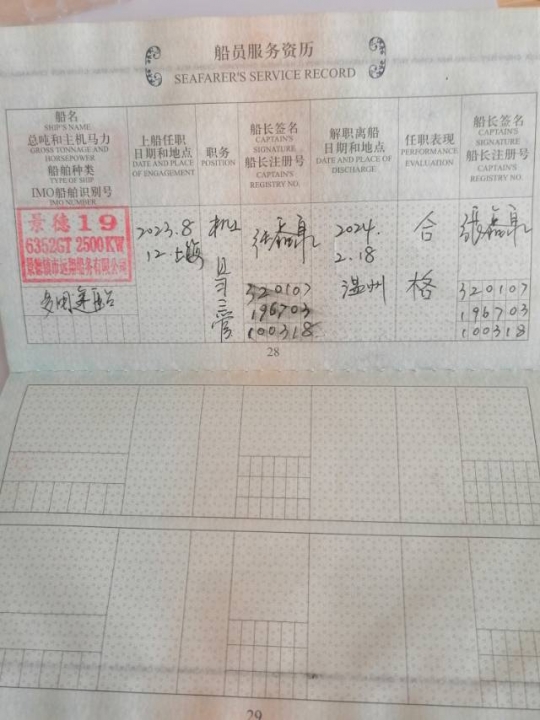 船员服务资历
SEAFARER'S SERVICE RECORD
船名
SHIP'S NAME
总吨和主机马力
GROSS TONNAGE AND
HORSEPOWER
船舶种类
TYPE OF SHIP
IMO船舶识别号
IMO NUMBER
上船任职
日期和地点
DATE AND PLACE
OF ENGAGEMENT
职务
POSITION
船长签名
CAPTAIN'S
SIGNATURE
船长注册号
CAPTAIN'S
REGISTRY NO.
解职离船
日期和地点
DATE AND PLACE OF
DISCHARGE
任职表现
PERFORMANCE
EVALUATION
船长签名
CAPTAIN'S
SIGNATURE
船长注册号
CAPTAIN'S
REGISTRY NO.
景德19
6352GT 2500KW
景德镇市远翔船务有限公司
多用途船
2023.8
12.上海
见
习
三
管
320107
196703
100318
2024.
2.18
温州
合
格
320107
196703
100318
28
29